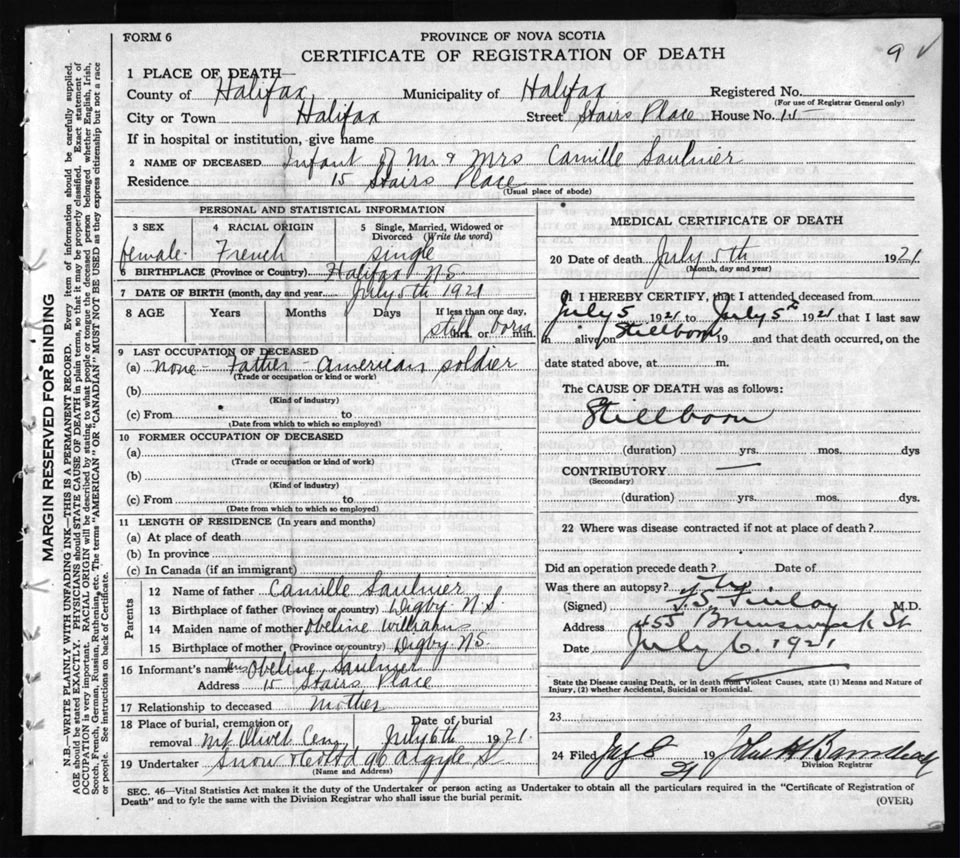 FORM 6
PROVINCE OF NOVA SCOTIA
CERTIFICATE OF REGISTRATION OF DEATH
9 ✓
1 PLACE OF DEATH—
County of Halifax Municipality of Halifax Registered No.
(For use of Registrar General only)
City or Town Halifax Street Stairs Place House No. 15
If in hospital or institution, give name
2 NAME OF DECEASED Infant of Mr & Mrs Camille Saulnier
Residence 15 Stairs Place
(Usual place of abode)
PERSONAL AND STATISTICAL INFORMATION
3 SEX 4 RACIAL ORIGIN 5 Single, Married, Widowed or Divorced (Write the word)
female. French single
6 BIRTHPLACE (Province or Country) Halifax N.S.
7 DATE OF BIRTH (month, day and year) July 5th 1921
8 AGE Years Months Days If less than one day,
still hrs. or born min.
9 LAST OCCUPATION OF DECEASED
(a) none - Father - American soldier
(Trade or occupation or kind or work)
(b)
(Kind of industry)
(c) From to
(Date from which to which so employed)
10 FORMER OCCUPATION OF DECEASED
(a)
(Trade or occupation or kind of work)
(b)
(Kind of industry)
(c) From to
(Date from which to which so employed)
11 LENGTH OF RESIDENCE (In years and months)
(a) At place of death
(b) In province
(c) In Canada (if an immigrant)
Parents
12 Name of father Camille Saulnier
13 Birthplace of father (Province or country) Digby N.S.
14 Maiden name of mother Obeline Williams
15 Birthplace of mother (Province or country) Digby NS
16 Informant's name Mrs Obeline Saulnier
Address 15 Stairs Place
17 Relationship to deceased Mother
18 Place of burial, cremation or removal Mt Olivet Cem Date of burial July 6th 1921.
19 Undertaker Snow & Co Ltd 90 Argyle St
(Name and Address)
MEDICAL CERTIFICATE OF DEATH
20 Date of death July 5th 1921
(Month, day and year)
21 I HEREBY CERTIFY, that I attended deceased from
July 5 1921 to July 5th 1921 that I last saw
h alive on Stillborn 19 and that death occurred, on the
date stated above, at m.
The CAUSE OF DEATH was as follows:
Stillborn
(duration) yrs. mos. dys
CONTRIBUTORY
(Secondary)
(duration) yrs. mos. dys.
22 Where was disease contracted if not at place of death?
Did an operation precede death? Date of
Was there an autopsy?
(Signed) Finlay M.D.
Address 455 Brunswick St
Date July 6. 1921
State the Disease causing Death, or in death from Violent Causes, state (1) Means and Nature of Injury, (2) whether Accidental, Suicidal or Homicidal.
23
24 Filed 8 1921 John H Barnstead
Division Registrar
SEC. 46—Vital Statistics Act makes it the duty of the Undertaker or person acting as Undertaker to obtain all the particulars required in the "Certificate of Registration of
Death" and to fyle the same with the Division Registrar who shall issue the burial permit.
(OVER)
MARGIN RESERVED FOR BINDING
N.B.—WRITE PLAINLY WITH UNFADING INK—THIS IS A PERMANENT RECORD. Every item of information should be carefully supplied.
AGE should be stated EXACTLY. PHYSICIANS should STATE CAUSE OF DEATH in plain terms, so that it may be properly classified. Exact statement of
OCCUPATION is very important. RACIAL ORIGIN will be described by stating to what people or tongue the deceased person belonged whether English, Irish,
Scotch, French, German, Russian, Ruthenian, etc. The terms "AMERICAN" OR "CANADIAN" MUST NOT BE USED as they express citizenship but not a race
or people. See instructions on back of Certificate.